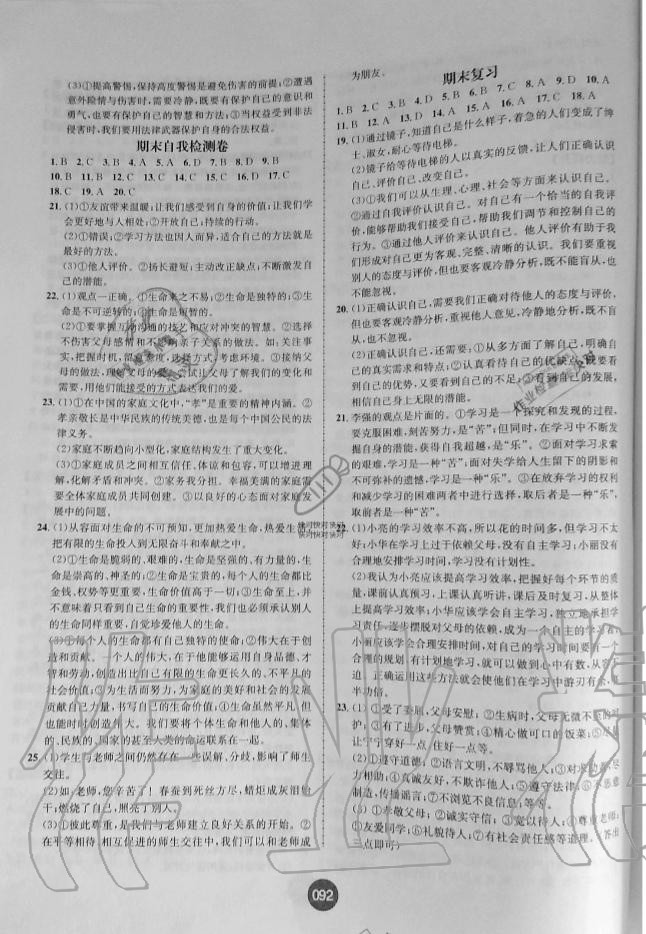 (3)①提高警惕,保持高度警惕是避免伤害的前提;②遭遇
意外险情与伤害时,需要冷静,既要有保护自己的意识和
勇气,也要有保护自己的智慧和方法;③当权益受到非法
侵害时,我们要用法律武器保护自身的合法权益。
期末自我检测卷
1. B 2. C 3. B 4. A 5. A 6. D 7. B 8. D 9. B
10. B 11. B 12. D 13. C 14. B 15. D 16. A 17. C
18. C 19. A 20. C
21. (1)①友谊带来温暖;让我们感受到自身的价值;让我们学
会更好地与人相处;②开放自己;持续的行动。
(2)①错误;②学习方法也因人而异,适合自己的方法就是
最好的方法。
(3)①他人评价。②扬长避短;主动改正缺点;不断激发自
己的潜能。
22. (1)观点一正确。①生命来之不易;②生命是独特的;③生
命是不可逆转的;④生命是短暂的。
(2)①要掌握互相沟通的技艺和应对冲突的智慧。②选择
不伤害父母感情和不影响亲子关系的做法。如:关注事
实,把握时机,留意态度,选择方式,考虑环境。③接纳父
母的做法,理解父母的爱。尝试让父母了解我们的变化和
需求,用他们能接受的方式表达我们的爱。
23. (1)①在中国的家庭文化中,“孝”是重要的精神内涵。②
孝亲敬长是中华民族的传统美德,也是每个中国公民的法
律义务。
(2)家庭不断趋向小型化,家庭结构发生了重大变化。
(3)①家庭成员之间相互信任、体谅和包容,增进理解,
化解矛盾和冲突。②家务分担。幸福美满的家庭需要
全体家庭成员共同创建。③以良好的心态面对家庭发
展中的问题。
24. (1)从容面对生命的不可预知,更加热爱生命,热爱生活,
把有限的生命投入到无限奋斗和奉献之中。
(2)①生命是脆弱的、艰难的,生命是坚强的、有力量的,生
命是崇高的、神圣的;②生命是宝贵的,每个人的生命都比
金钱、权势等更重要,生命价值高于一切;③生命至上,并
不意味着只看到自己生命的重要性,我们也必须承认别人
的生命同样重要,自觉珍爱他人的生命。
(3)①每个人的生命都有自己独特的使命;②伟大在于创
造和贡献。一个人的伟大,在于他能够运用自身品德、才
智和劳动,创造出比自己有限的生命更长久的、不平凡的
社会价值;③为生活而努力,为家庭的美好和社会的发展
贡献自己力量,书写自己的生命价值。④生命虽然平凡,但
也能时时创造伟大。我们要将个体生命和他人的、集体
的、民族的、国家的甚至人类的命运联系在一起。
25. (1)学生与老师之间仍然存在一些误解、分歧,影响了师生
交往。
(2)如:老师,您辛苦了!春蚕到死丝方尽,蜡炬成灰泪始
干;燃烧了自己,照亮了别人。
(3)①彼此尊重,是我们与老师建立良好关系的开始。②
在平等对待、相互促进的师生交往中,我们可以和老师成
为朋友。
期末复习
1. B 2. C 3. B 4. D 5. A 6. C 7. A 8. D 9. D 10. A
11. B 12. A 13. D 14. A 15. A 16. C 17. A 18. A
19. (1)通过镜子,知道自己是什么样子,着急的人们变成了绅
士、淑女,耐心等待电梯。
(2)镜子给等待电梯的人以真实的反馈,让人们正确认识
自己、评价自己、改变自己。
(3)①我们可以从生理、心理、社会等方面来认识自己。
②通过自我评价认识自己。对自己有一个恰当的自我评
价,能够帮助我们接受自己,帮助我们调节和控制自己的
行为。③通过他人评价来认识自己。他人评价有助于我
们形成对自己更为客观、完整、清晰的认识。我们要重视
别人的态度与评价,也要客观冷静分析,既不能盲从,也
不能忽视。
20. (1)正确认识自己,需要我们正确对待他人的态度与评价,
不但要客观冷静分析,重视他人意见,冷静地分析,不能盲
从,也不忽视。
(2)正确认识自己,还需要:①从多方面了解自己,明确自
己的真实需求和特点;②认真看待自己的优缺点,既要看
到自己的优势,又要看到自己的不足;③看到自己的发展,
相信自身上无限的潜能。
21. 李强的观点是片面的。①学习是一个探究和发现的过程,
要克服困难,刻苦努力,是“苦”;②但在学习中不断努力,发
掘自身的潜能,获得自我超越,是“乐”。②面对学习中求索
的艰难,学习是一种“苦”;面对失学给人生留下的阴影和
不可弥补的遗憾,学习则是一种“乐”。③在放弃学习的权利
和减少学习的困难两者中进行选择,取后者是一种“乐”,
取前者则是一种“苦”。
22. (1)小亮的学习效率不高,所以花的时间多,但学习不太
好;小华在学习上过于依赖父母,没有自主学习;小丽没有
合理地安排学习时间,没有计划。
(2)我认为小亮应该提高学习效率,把握好每个环节的质
量,课前认真预习,上课认真听讲,课后及时复习,从而提
高学习效率;小华应该学会自主学习,独立地承担学
习责任,逐步摆脱对父母的依赖,成为一个成功的学习者;
小丽应该学会合理安排时间,对自己的学习时间要有一个
合理的规划,有计划地学习,就可以做到心中有数,从容镇
正确运用这些方法就会使他们在学习中游刃有余,事
半功倍。
23. (1)①受了委屈,父母安慰;②生病时,父母无微不至的呵
护;③有了进步,父母赞赏;④精心做可口的饭菜;⑤尽量
让宁宁穿好一点、住好一点。
(2)①遵守道德;②语言文明,不辱骂他人;③对来源
制造,传播谣言;④真诚友好,不欺诈他人;⑤遵守法律;⑥不恶意
制造、传播谣言;⑦不浏览不良信息;
(3)①孝敬父母;②诚实守信;③宽以待人;④尊重老师;
⑤友爱同学;⑥礼貌待人;⑦有社会责任感等道理。(答出
三点即可)
快对快对快对
092